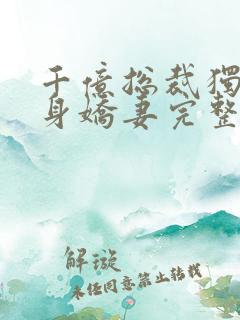 千億總裁獨
身嬌妻完整
解漩
未任同意禁止转载